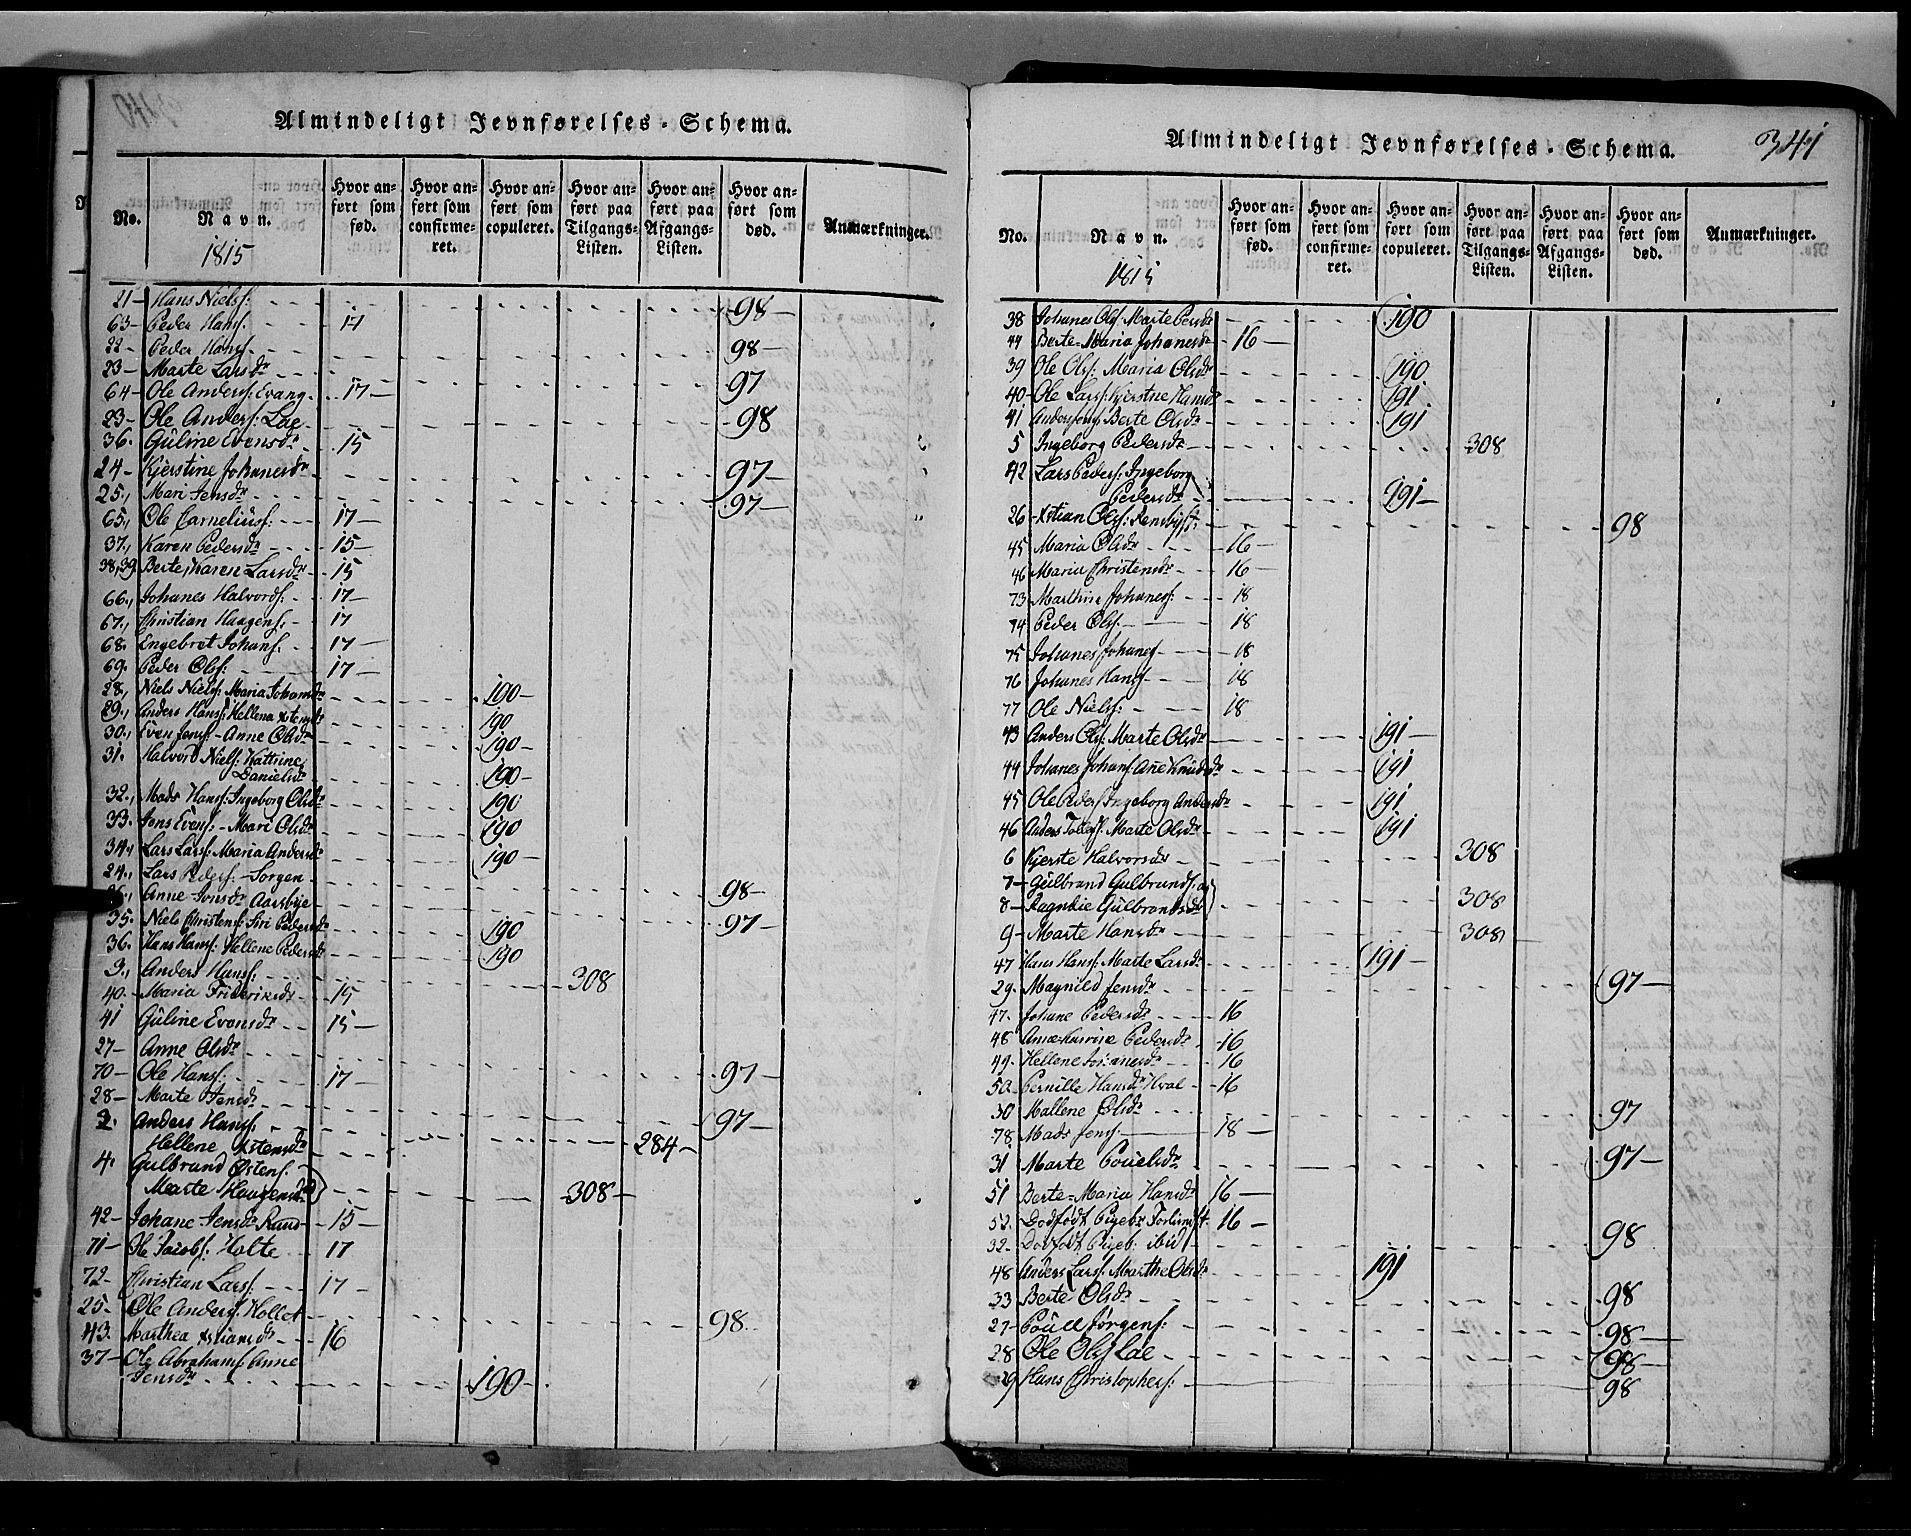 Almindeligt Jevnførelses-Schema.
No. Navn. Hvor anført som fød. Hvor anført som confirmeret. Hvor anført som copuleret. Hvor anført paa Tilgangs-Listen. Hvor anført paa Afgangs-Listen. Hvor anført som død. Anmærkninger.
1815
21 - Hans Nielsf: 98 -
63 - Peder Hansf. 17
22 - Peder Hansf. 98 -
23 - Marte Larsdr 97
64 - Ole Andersf: Evang 17 -
23 - Ole Andersf: Lae 98
36. Guline Evensdr 15
24 - Kjerstine Johanesdr 97 -
25., Mari Jensdr 97 -
65., Ole Carneliusf: 17 -
37., Karen Pedersdr 15 -
38,39. Berte, Karen Larsdr 15
66., Johanes Halvordf: 17 -
67., Christian Haagensf: 17
68. Engebret Johansf. 17 -
69. Peder Olsf: 17 -
28., Niels Nielsf: Maria Johansdr 190 -
29., Anders Hansf: Hellena Xstensdr 190
30., Even Jensf - Anne Olsdr 190 -
31. Halvord Nielsf: Kattrine
Danielsdr 190 -
32., Mads Hansf: Ingeborg Olsdr 190
33. Jens Evensf - Mari Olsdr 190
34., Lars Larsf: Maria Andersdr 190 -
24., Lars Pedersf: Sorgen 98 -
Anne Jonsdr Aarsbye 97 -
35. Niels Christensf: Siri Pedersdr 190
36. Hans Hansf: Hellene Pedersdr 190
3., Anders Hansf: 308
40. Maria Frideriksdr 15
41 Guline Evensdr 15 -
27 - Anne Olsdr 97 -
70 - Ole Hansf: 17 -
28 - Marte Jensdr 97 -
2. Anders Hansf:
Hellene Xstensdr 284 -
4. Gulbrand Østensf:
Marte Haagensdr 308 -
42 - Johane Jensdr Ruud 15 -
71 - Ole Jacobsf: Holte 17
72 - Christian Larsf. 17 -
25 - Ole Andersf Hollet 98
43. Marthea Xstiansdr 16
37 - Ole Abrahamsf: Anne
Jensdr 190
Almindeligt Jevnførelses-Schema. 341
No. Navn. Hvor anført som fød. Hvor anført som confirmeret. Hvor anført som copuleret. Hvor anført paa Tilgangs-Listen. Hvor anført paa Afgangs-Listen. Hvor anført som død. Anmærkninger.
1815
38 Johanes Olsf. Marte Persdr 190
44 Berte-Maria Johanesdr 16 -
39 Ole Olsf: Maria Olsdr 190
40 - Ole Larsf: Kjerstne Hansdr 191
41 Berte Olsdr 191
5 Ingeborg Pedersdr 308
42 Lars Pedersf: Ingeborg
Pedersdr 191 -
26 - Xstian Olsf: 98
45 Maria Olsdr 16 -
46 Maria Christensdr 16 -
73 Marthin Johanesf: 18
74 Peder Olsf. 18
75 Johanes Johanesf 18
76 Johanes Hansf 18
77 Ole Nielsf: 18
43 Anders Olsf: Marte Olsdr 191 -
44 Johanes Johansf. Ane Knudsdr 191
45 Ole Pedersf Ingeborg Andersdr 191
46 Anders Tollefsf. Marte Olsdr 191
6 Kjerste Halvorsdr 308
7 - Gulbrand Gulbrandsf: og
8 - Ragnhie Gulbrandsdr 308
9 - Marte Hansdr 308
47 Hans Hansf: Marte Larsdr 191 -
29. Magnild Jensdr 97 -
47. Johane Pedersdr 16
48 Pedersdr 16
49. Hellene Johanesdr 16
50. Pernille Hansdr Hval 16
30 Mallene Olsdr 97
78 Mads Jensf 18 -
31 Marte Pouelsdr 97 -
51 Berte-Maria Hansdr 16 -
52. Dødfødt Pigeb: 16 -
32 - Dødfødt Pigeb: ibid 98
48 Anders Larsf: Marthe Olsdr 191
33 Berte Olsdr 98
27 - Pouel Jørgensf: 98 -
28 Ole Olsf Lae 98
29 Hans Christophersf: 98